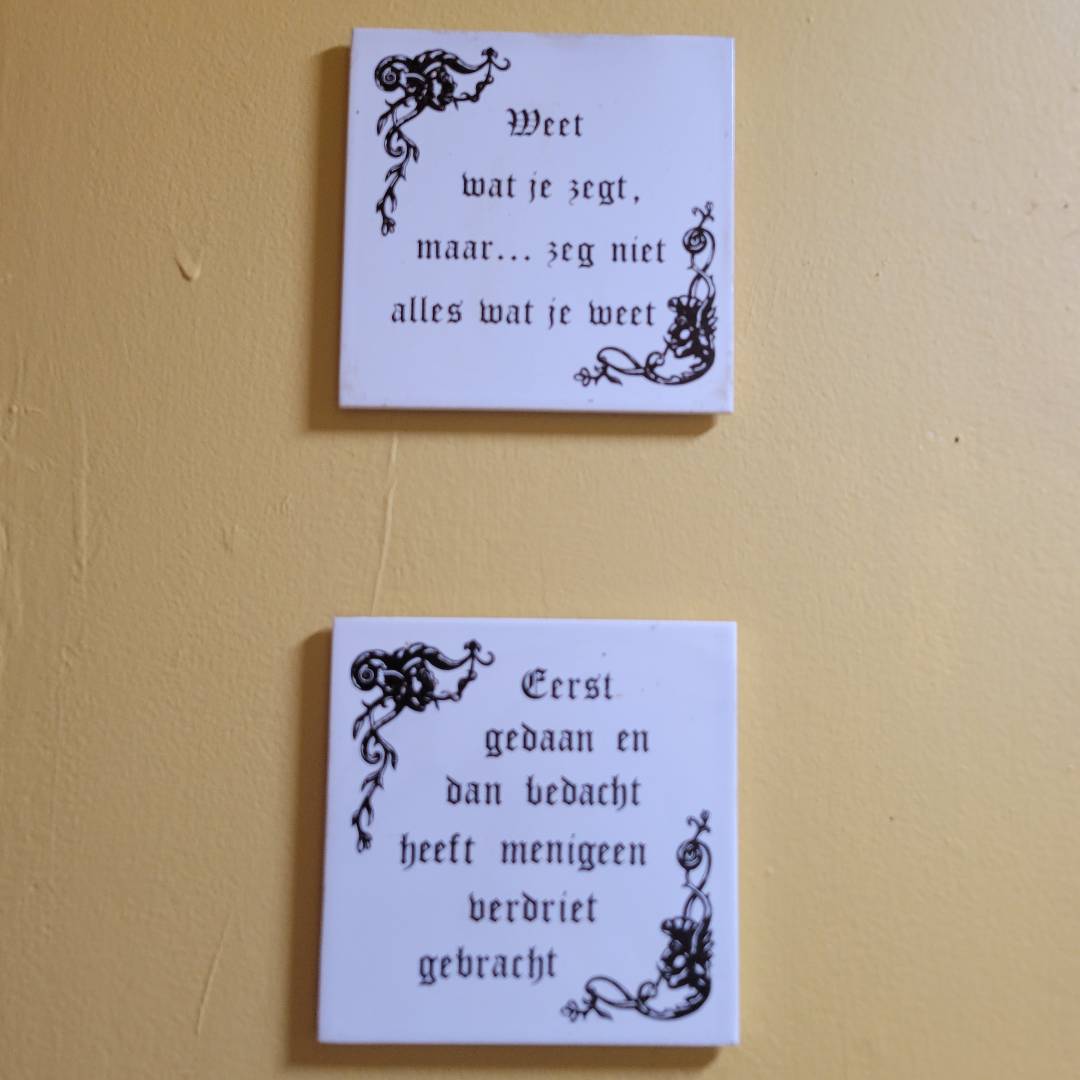 Weet
wat je zegt,
maar... zeg niet
alles wat je weet
Eerst
gedaan en
dan bedacht
heeft menigeen
verdriet
gebracht